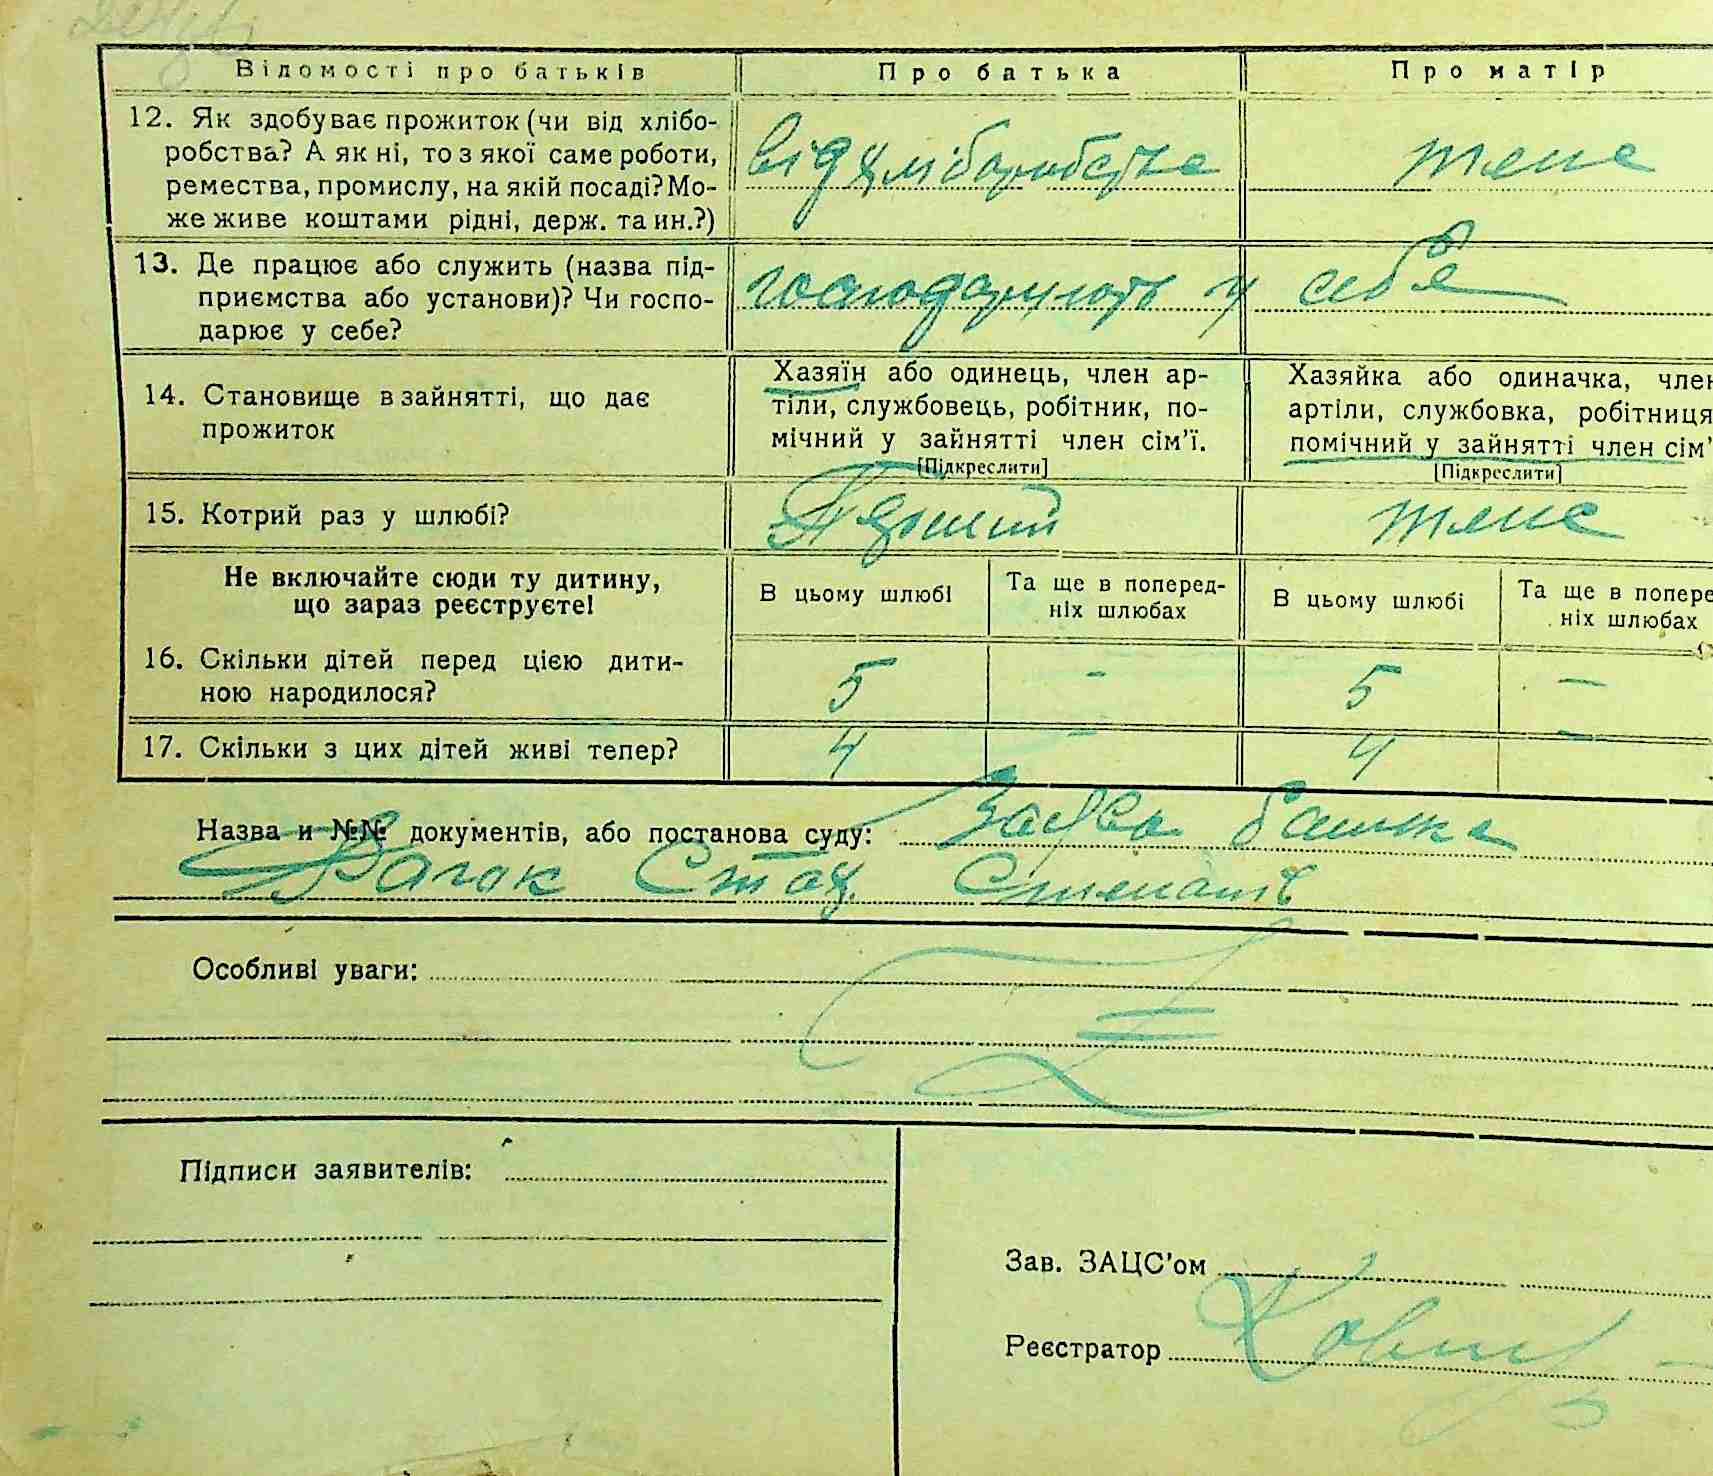 Відомості про батьків Про батька Про матір
12. Як здобуває прожиток (чи від хлібо-
робства? А як ні, то з якої саме роботи,
ремества, промислу, на якій посаді? Мо-
же живе коштами рідні, держ. та ин.?)
від хліборобства теж
13. Де працює або служить (назва під-
приємства або установи)? Чи госпо-
дарює у себе?
господарюють у себе
14. Становище в зайнятті, що дає
прожиток
Хазяїн або одинець, член ар-
тіли, службовець, робітник, по-
мічний у зайнятті член сім'ї.
[Підкреслити]
Хазяйка або одиначка, член
артіли, службовка, робітниця
помічний у зайнятті член сім'
[Підкреслити]
15. Котрий раз у шлюбі? Перший теж
Не включайте сюди ту дитину,
що зараз реєструєте!
В цьому шлюбі
Та ще в поперед-
ніх шлюбах
В цьому шлюбі
Та ще в попере
ніх шлюбах
16. Скільки дітей перед цією дити-
ною народилося?
5 - 5 -
17. Скільки з цих дітей живі тепер? 4 - 4 -
Назва и №№ документів, або постанова суду: Заява батька
Стах.
Особливі уваги:
Підписи заявителів:
Зав. ЗАЦС'ом
Реєстратор